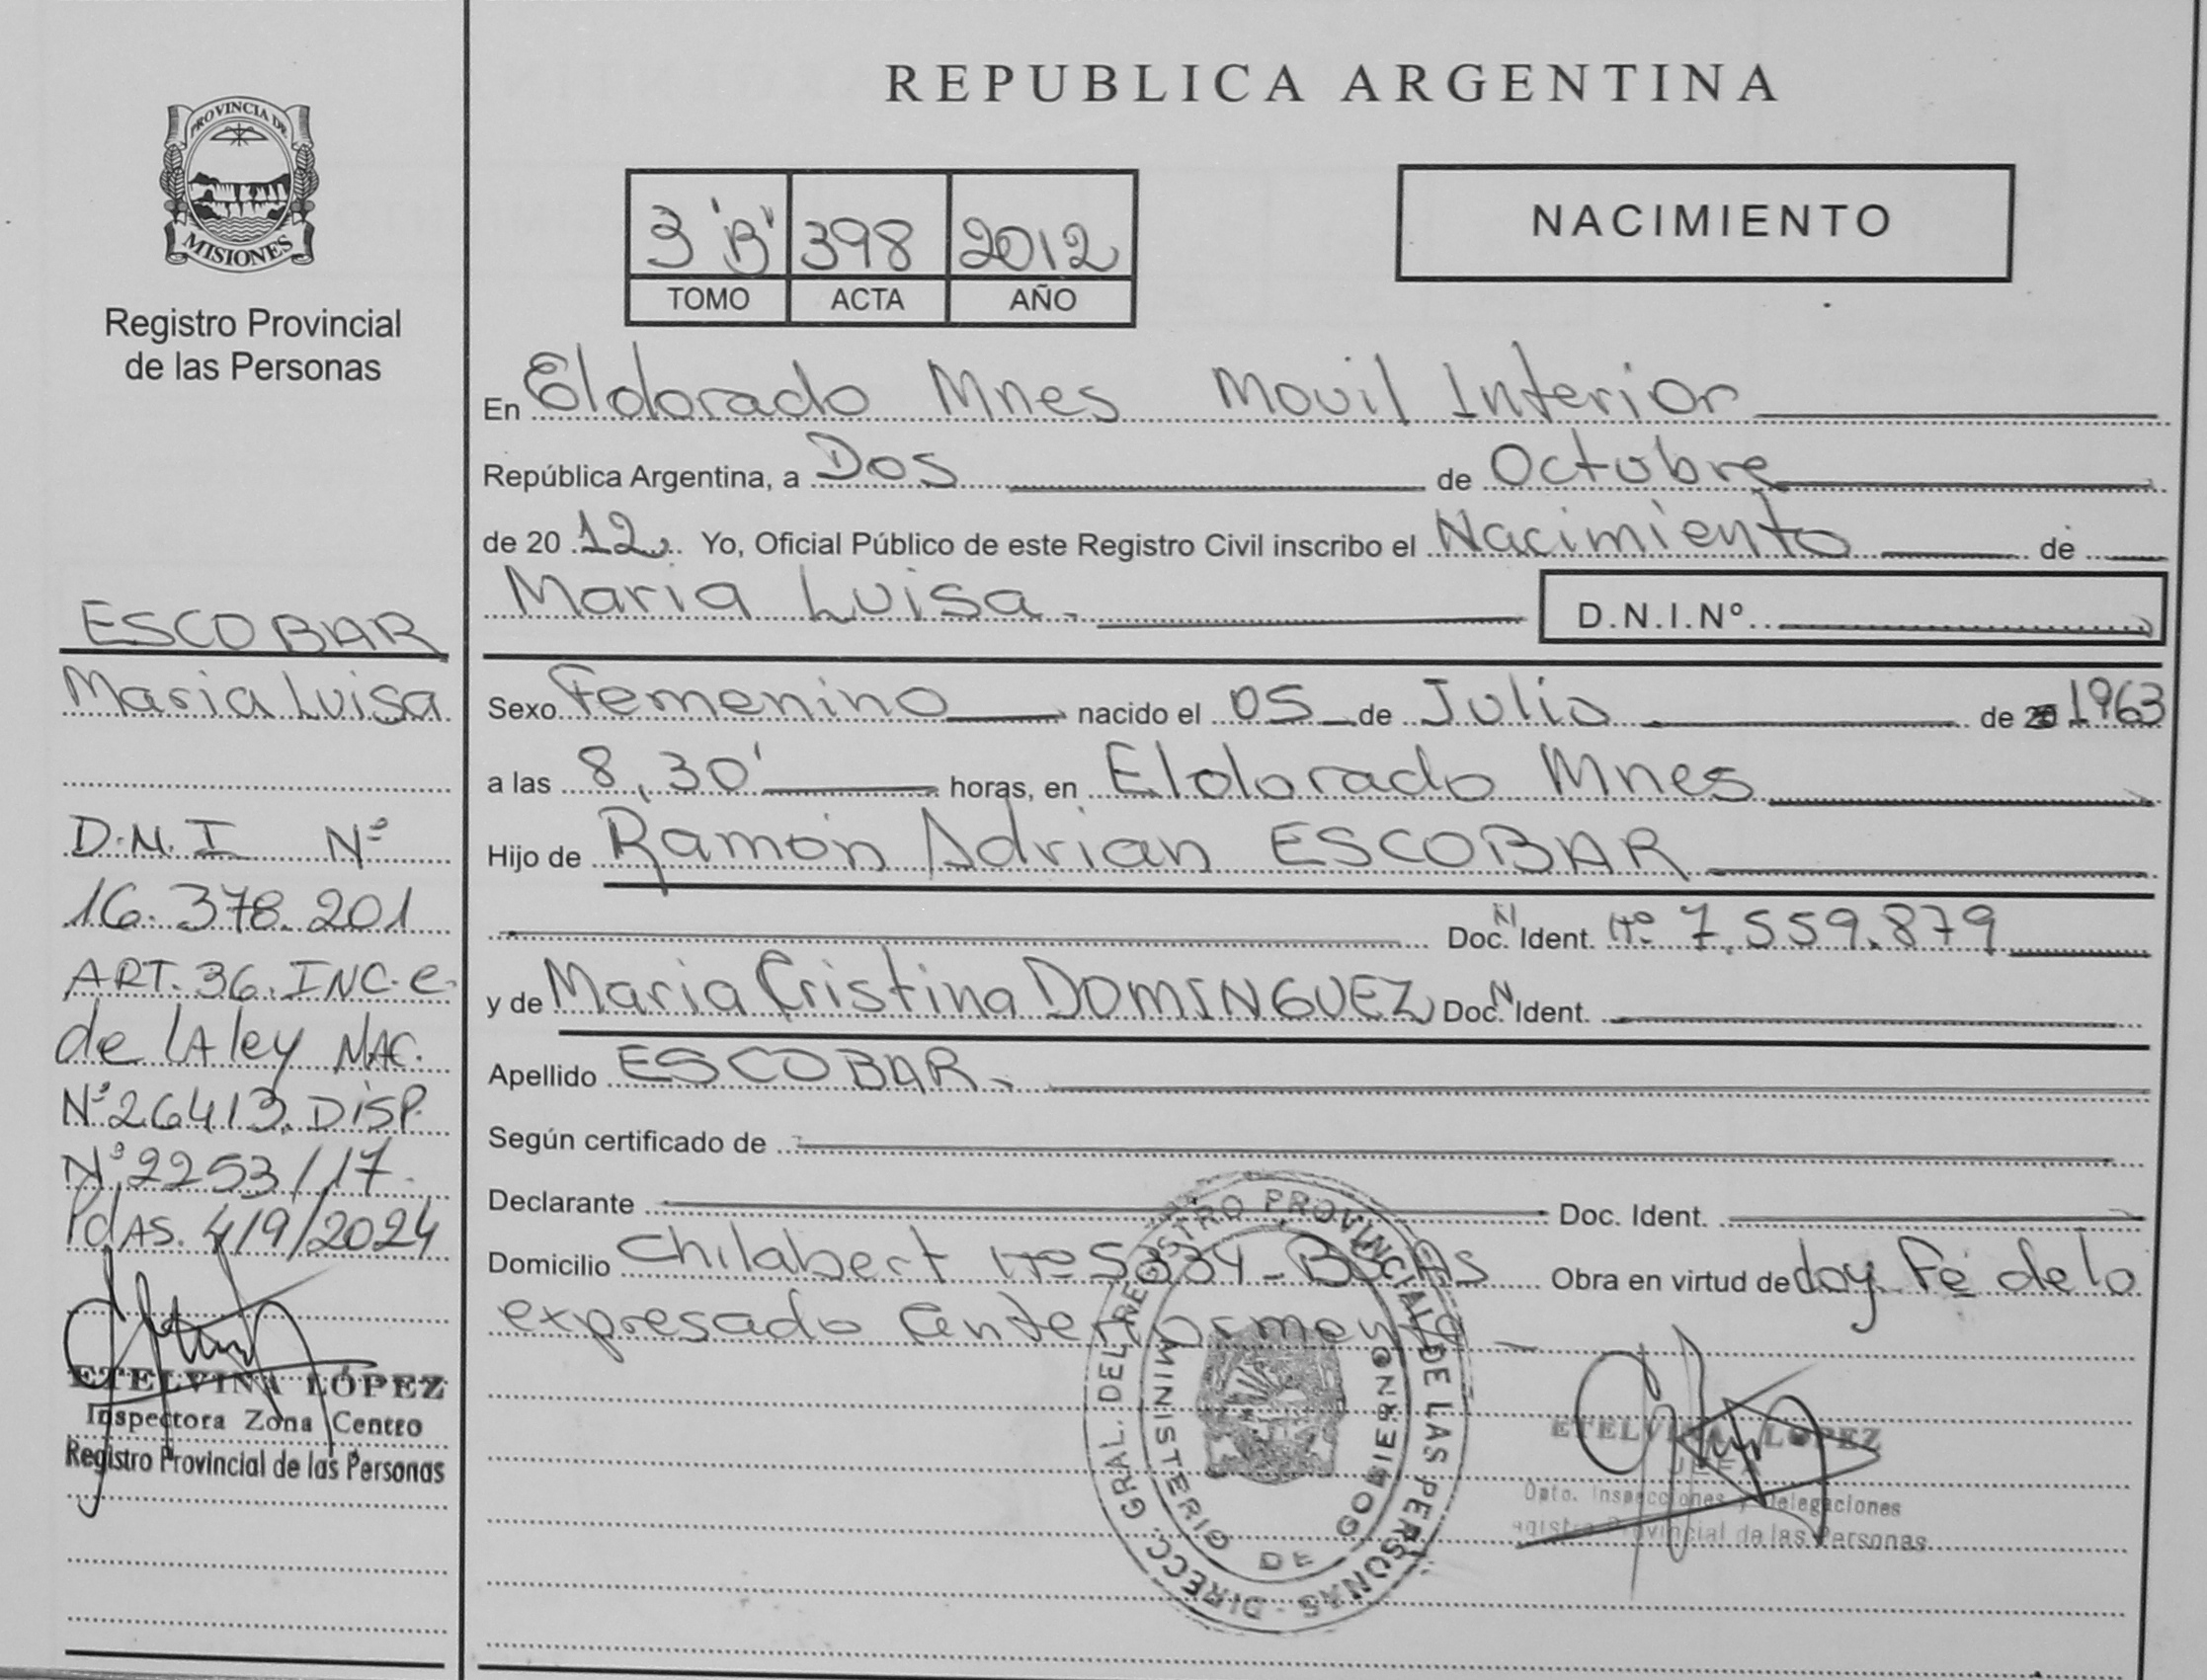 PROVINCIA DE
MISIONES
Registro Provincial
de las Personas
ESCOBAR
Maria Luisa
D.N.I Nº
16.378.201
ART. 36. INC. e.
de lA ley NAC.
Nº 26413. DISP.
Nº 2253/17.
PdAS. 4/9/2024
ETELVINA LÓPEZ
Inspectora Zona Centro
Registro Provincial de las Personas
REPUBLICA ARGENTINA
3 "B" 398 2012
TOMO ACTA AÑO
NACIMIENTO
En Eldorado Mnes Movil Interior
República Argentina, a Dos de Octubre
de 20 12 Yo, Oficial Público de este Registro Civil inscribo el Nacimiento de
Maria Luisa. D.N.I.Nº
Sexo Femenino nacido el 05 de Julio de 20 1963
a las 8,30' horas, en Eldorado Mnes
Hijo de Ramón Adrian ESCOBAR
Doc. N Ident. Nº 7.559.879
y de Maria Cristina DOMINGUEZ Doc. N Ident.
Apellido ESCOBAR.
Según certificado de
Declarante Doc. Ident.
Domicilio Chilabert Nº 5334 - Bs As Obra en virtud de doy Fé de lo
expresado anteriormente
DIRECC. GRAL. DEL REGISTRO PROVINCIAL DE LAS PERSONAS
MINISTERIO DE GOBIERNO
ETELVINA LOPEZ
JEFA
Dpto. Inspecciones y Delegaciones
Registro Provincial de las Personas